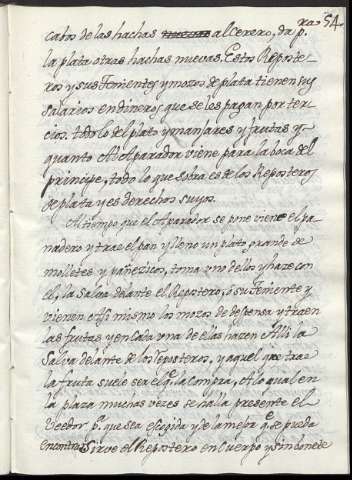 ra 54.
cabos de las hachas al Cerero, da p.
la plata otras hachas nuevas. Estos Reposte-
ros y sus Tenientes y mozos de plata tienen sus
salarios en dineros que se les pagan por ter-
cios. todo lo del plato y manjares y frutas y
quanto Al Aparador viene para la boca del
principe, todo lo que sobra es de los Reposteros
de plata y es derechos suyos.
Al tiempo que el Aparador se pone viene el pa-
nadero y trae el pan y lleno un plato grande de
molletes y panezicos, toma uno dellos y haze con
el, la Salva delante el Repostero, ó su Teniente y
vienen Asi mismo los mozos de despensa y traen
las frutas y en cada una de ellas hazen Alli la
Salva delante de los Reposteros, y aquel que trae
la fruta suele ser el q.e la compra, A lo qual en
la plaza muchas vezes se halla presente el
Veedor p.a que sea escogida y de la mejor q.e se pueda
encontrar. Sirve el Repostero en Cuerpo y sin bonete